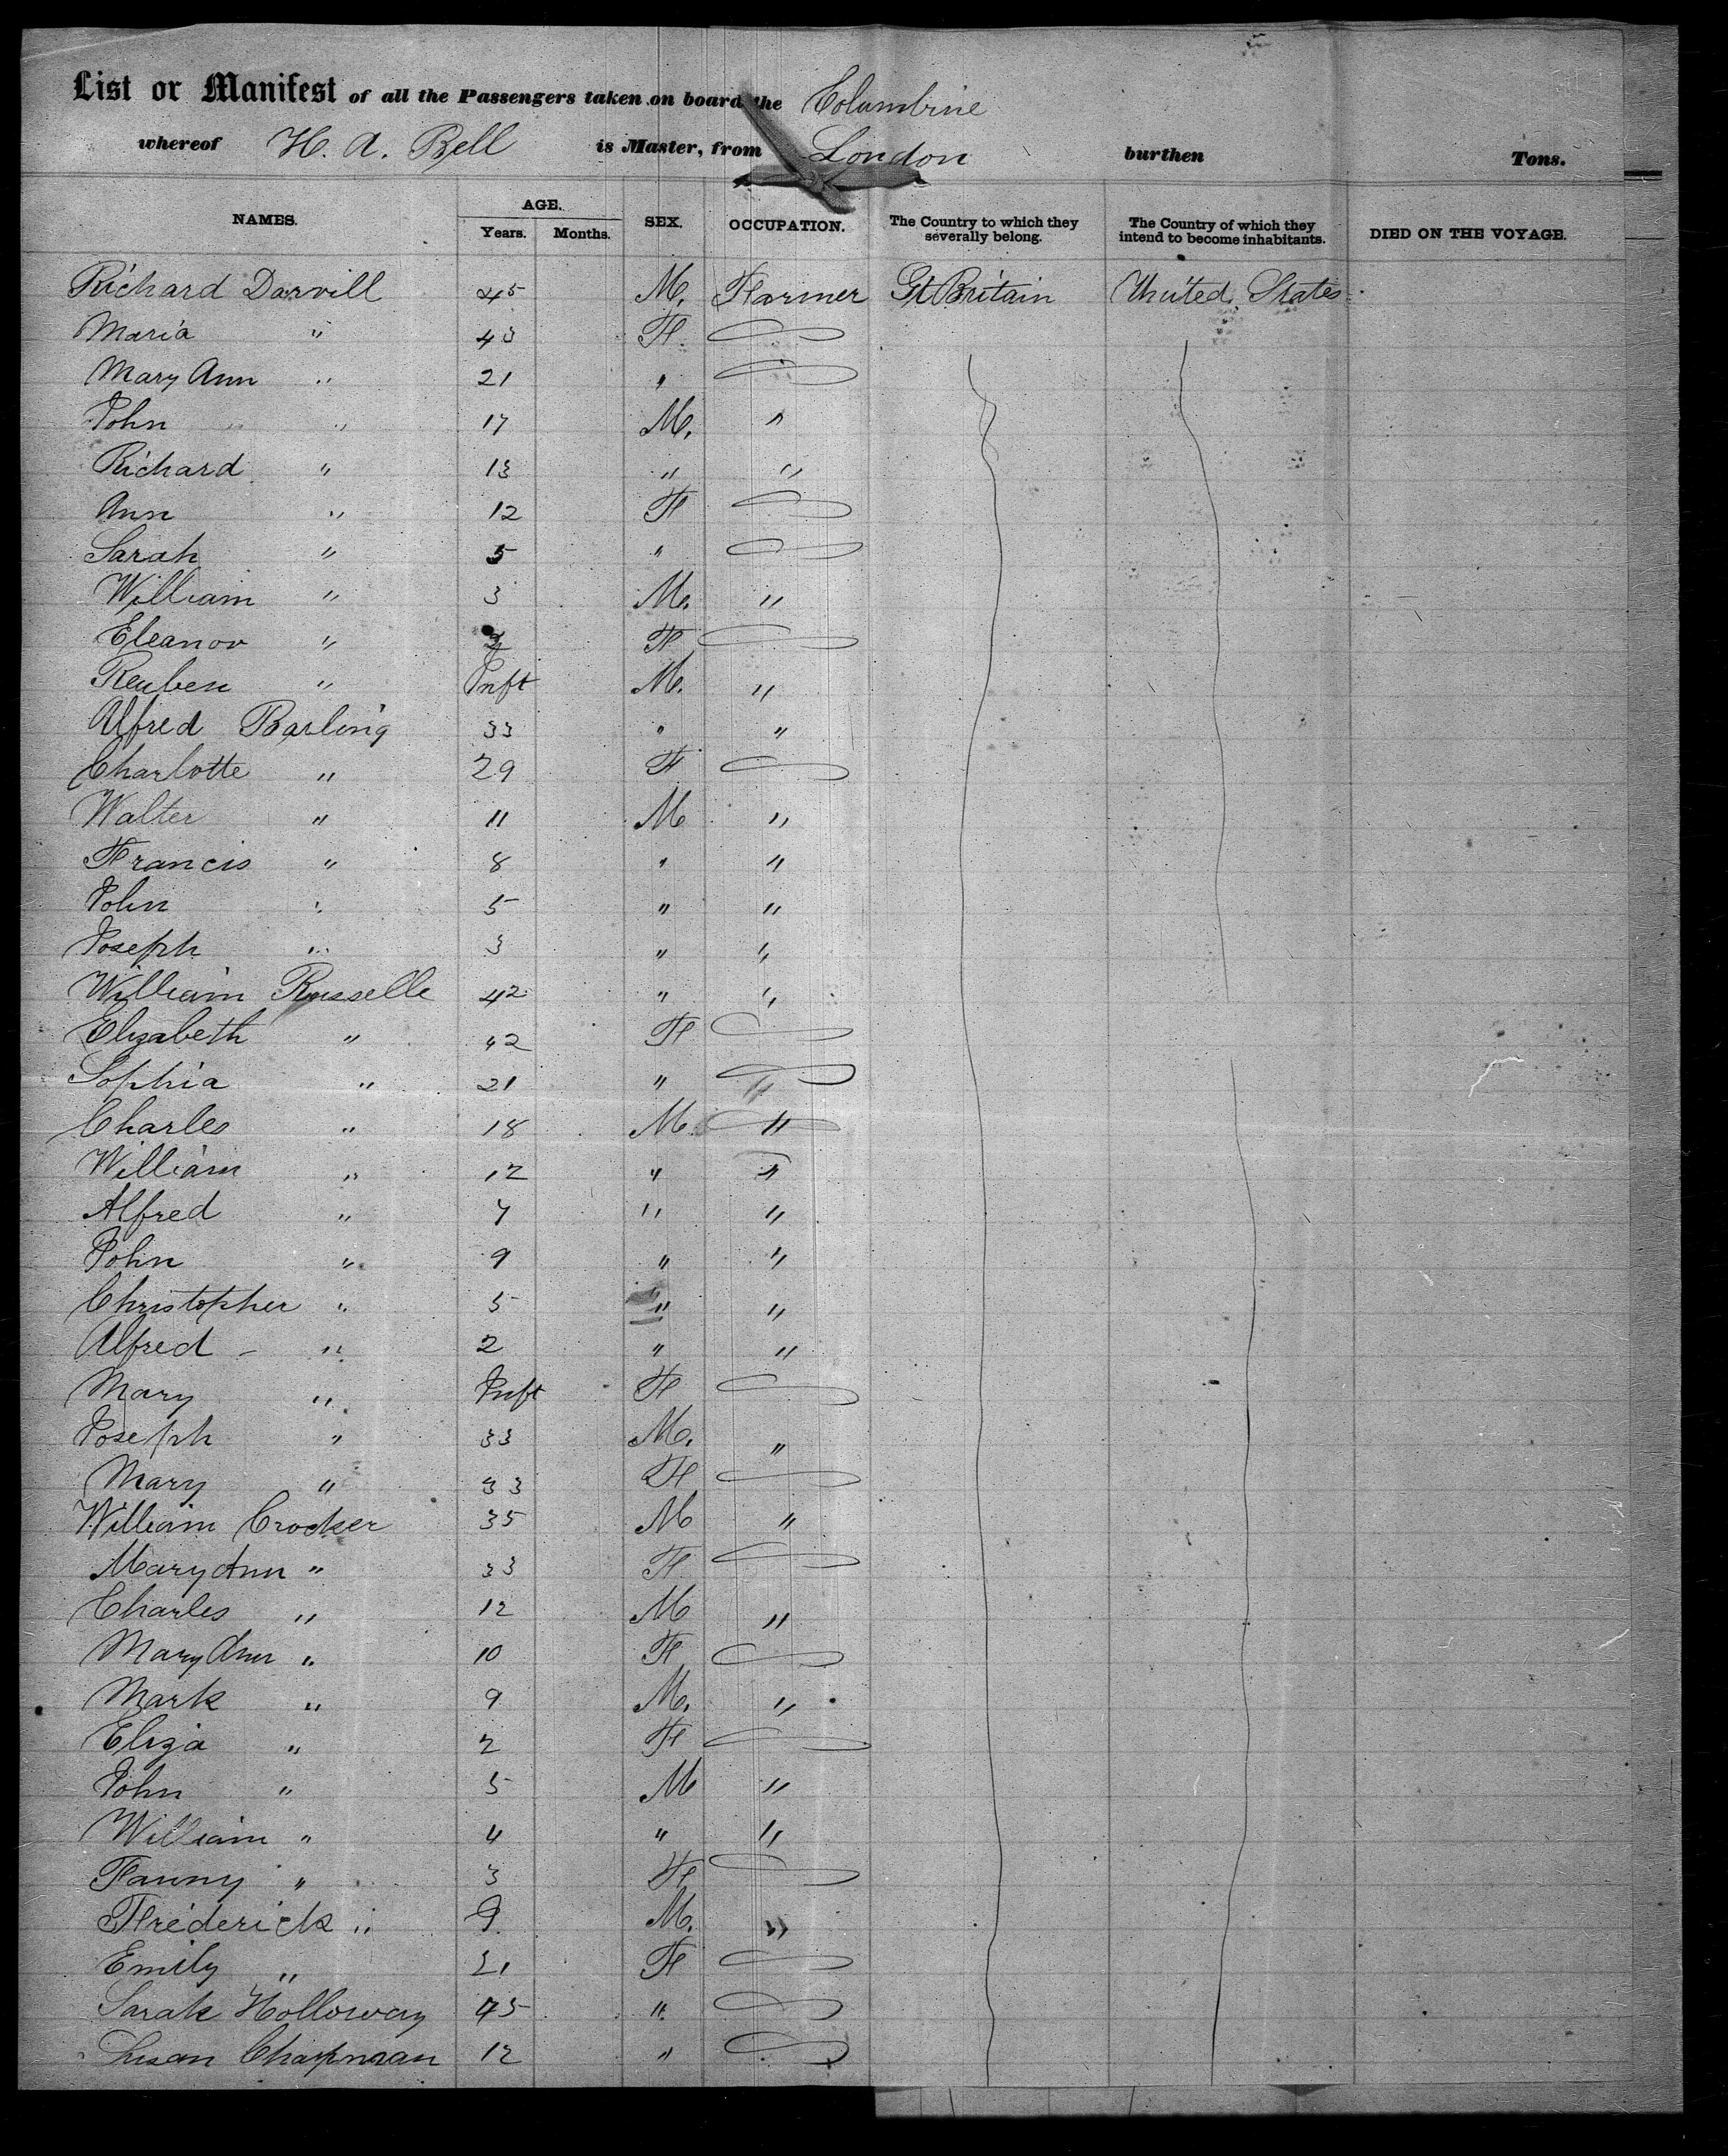 List or Manifest of all the Passengers taken on board the Columbine
whereof H. A. Bell is Master, from London burthen Tons.
NAMES. AGE. Years. Months. SEX. OCCUPATION. The Country to which they severally belong. The Country of which they intend to become inhabitants. DIED ON THE VOYAGE.
Richard Darvill 45 M. Farmer Gt Britain United States
Maria " 43 F.
Mary Ann " 21 "
John " 17 M. "
Richard " 13 " "
Ann " 12 F
Sarah " 5 "
William " 3 M. "
Eleanor " 2 F
Reuben " Inft M. "
Alfred Barling 33 " "
Charlotte " 29 F
Walter " 11 M "
Francis " 8 " "
John " 5 " "
Joseph " 3 " "
William Russelle 42 " "
Elizabeth " 42 F
Sophia " 21 "
Charles " 18 M "
William " 12 " "
Alfred " 7 " "
John " 9 " "
Christopher " 5 " "
Alfred - " 2 " "
Mary " Inft F
Joseph " 33 M. "
Mary " 33 F
William Crocker 35 M "
Mary Ann " 33 F
Charles " 12 M "
Mary Ann " 10 F
Mark " 9 M. "
Eliza " 2 F
John " 5 M "
William " 4 " "
Fanny " 3 F
Frederick " 9 M. "
Emily " 21 F
Sarah Holloway 45 "
Susan Chapman 12 "